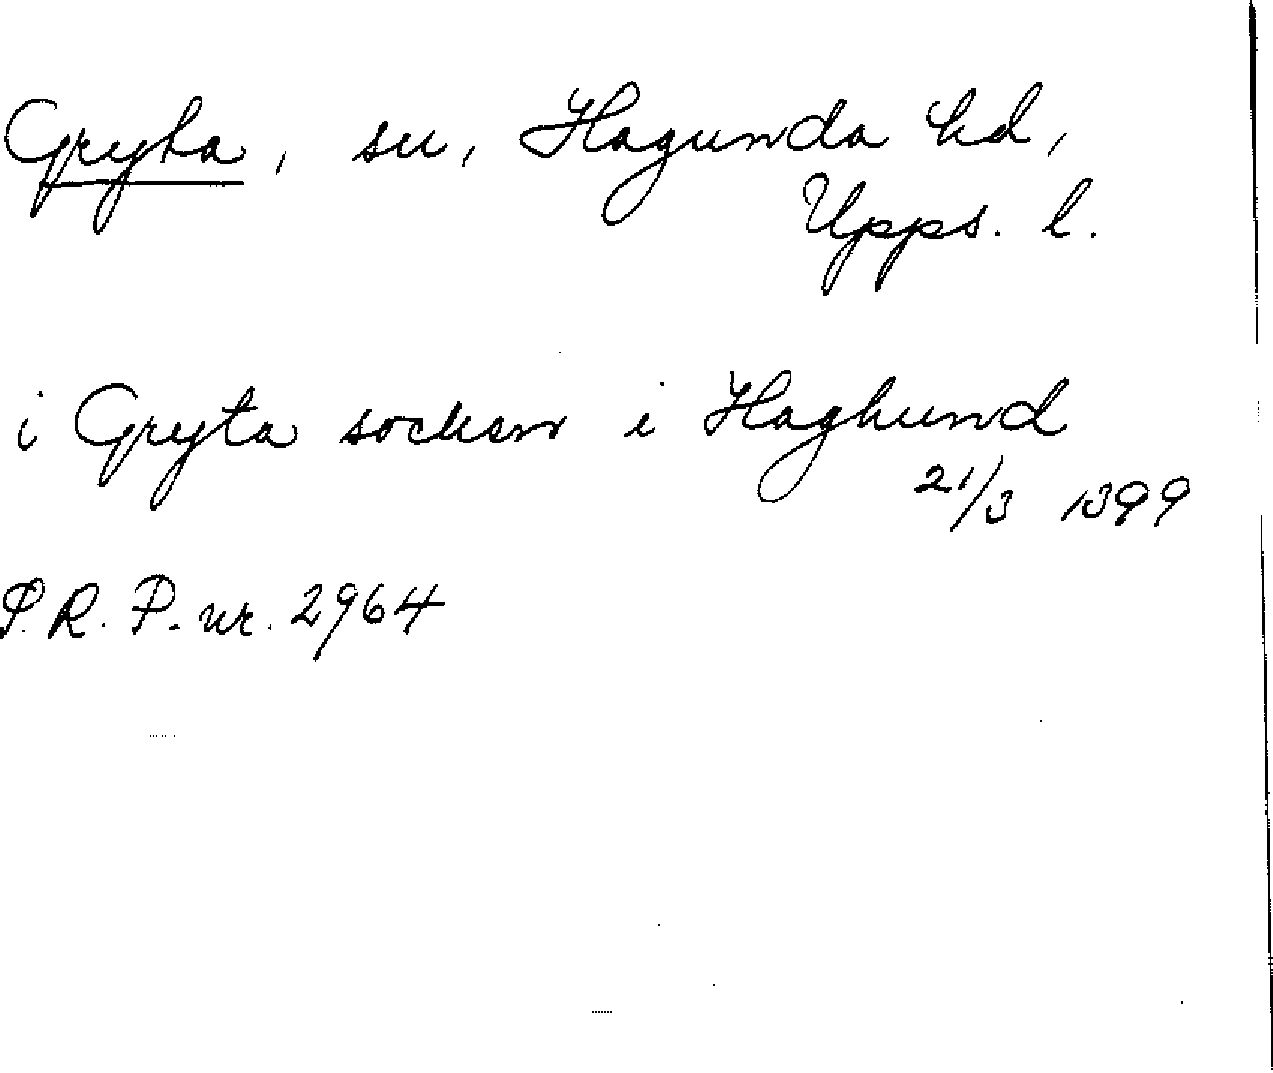 Gryta, sn, Hagunda hd,
Upps. l.
i Gryta socken i Haghund
21/3 1399
S.R.P. nr. 2964